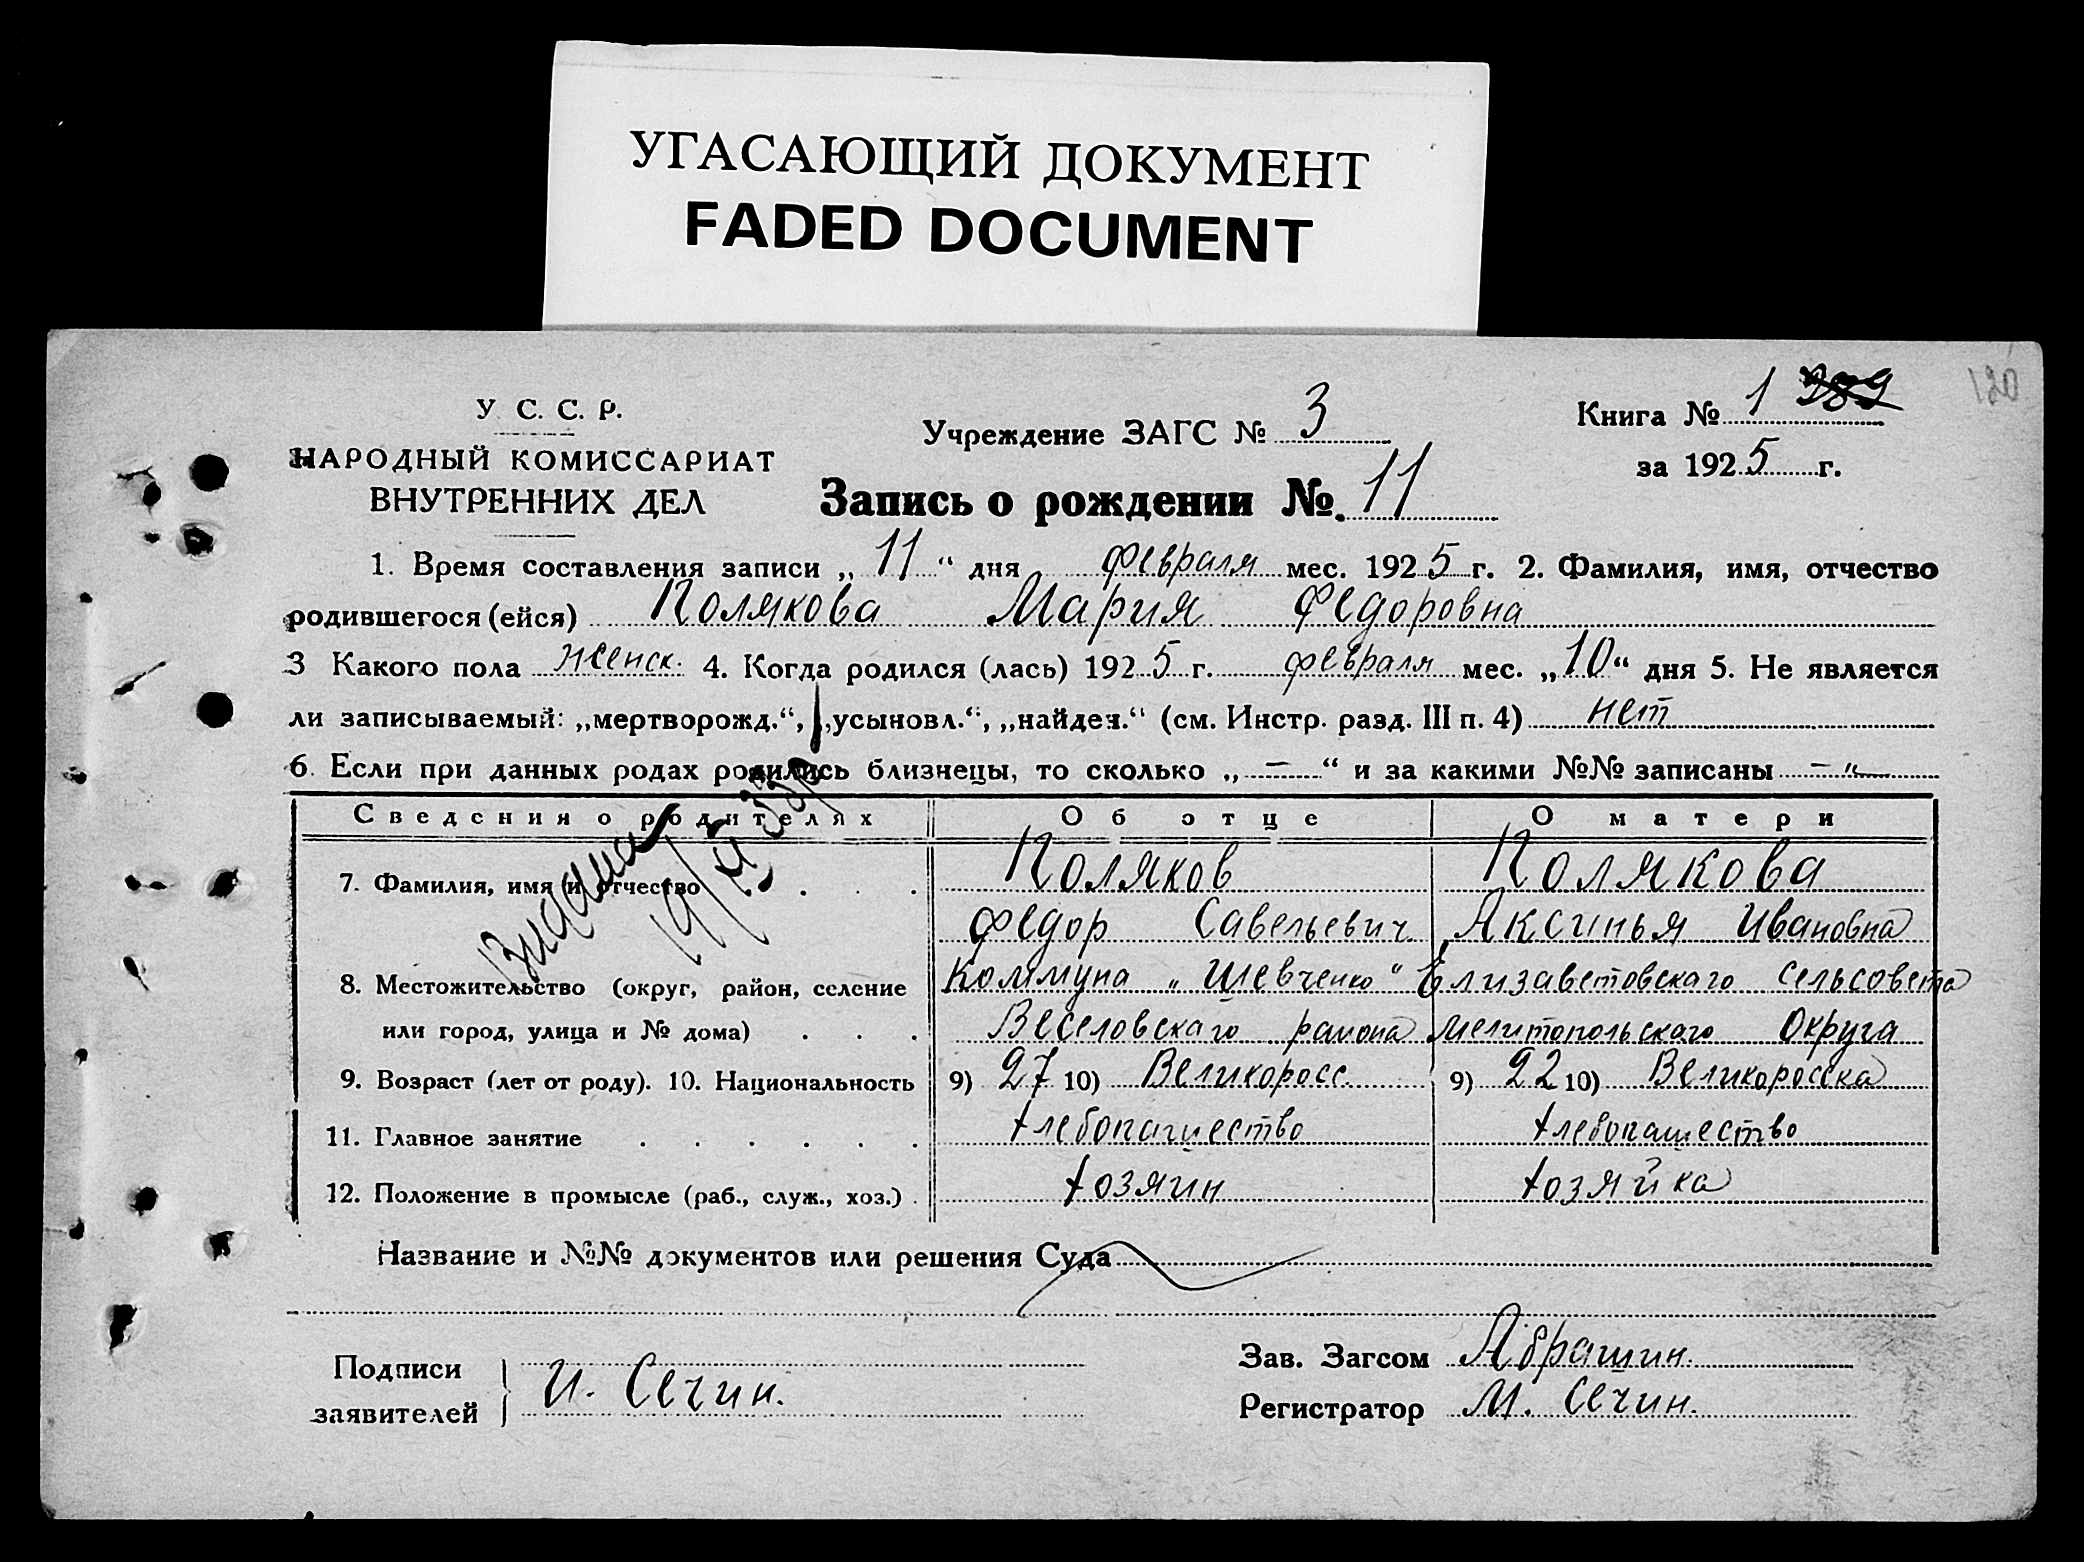 УГАСАЮЩИЙ ДОКУМЕНТ
FADED DOCUMENT
120
У. С. С. Р.
НАРОДНЫЙ КОМИССАРИАТ
ВНУТРЕННИХ ДЕЛ
Учреждение ЗАГС № 3
Книга № 1 989
за 1925 г.
Запись о рождении №. 11
1. Время составления записи „11“ дня февраля мес. 1925 г. 2. Фамилия, имя, отчество
родившегося (ейся) Полякова Мария Федоровна
3 Какого пола женск. 4. Когда родился (лась) 1925 г. февраля мес. „10“ дня 5. Не является
ли записываемый: „мертворожд.“, „усыновл.“, „найден.“ (см. Инстр. разд. III п. 4) нет
6. Если при данных родах родились близнецы, то сколько „—“ и за какими №№ записаны —„—
Сведения о родителях Об отце О матери
7. Фамилия, имя и отчество . . . Поляков Полякова
Федор Савельевич Аксинья Ивановна
8. Местожительство (округ, район, селение Коммуна „Шевченко“ Елизаветовскаго сельсовета
или город, улица и № дома) . . . Веселовскаго района Мелитопольскаго Округа
9. Возраст (лет от роду). 10. Национальность 9) 27 10) Великоросс. 9) 22 10) Великоросска
11. Главное занятие . . . . . Хлебопашество Хлебопашество
12. Положение в промысле (раб., служ., хоз.) . Хозяин Хозяйка
Название и №№ документов или решения Суда
Подписи
заявителей } И. Сечин.
Зав. Загсом Абрашин.
Регистратор М. Сечин.